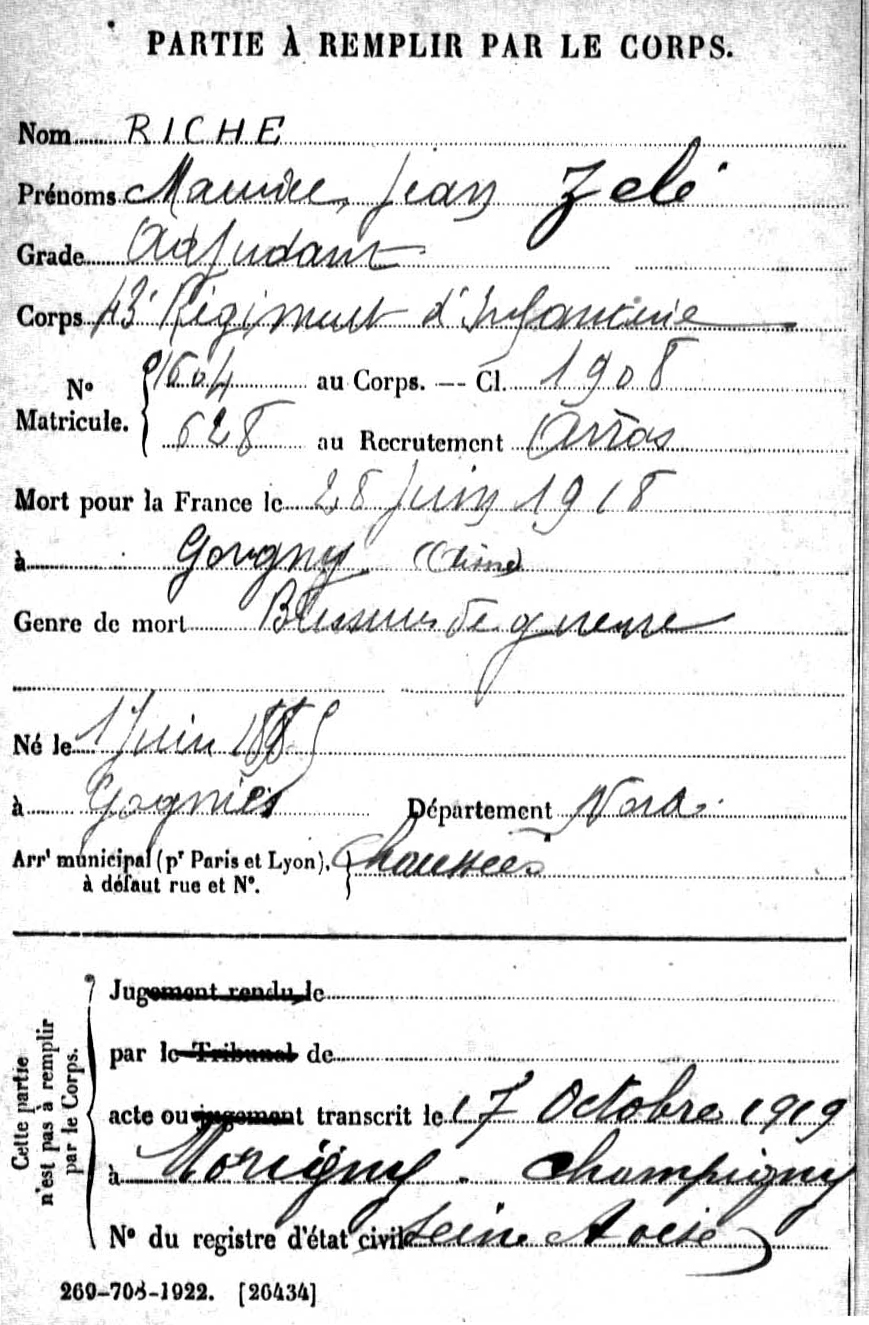 PARTIE À REMPLIR PAR LE CORPS.
Nom RICHE
Prénoms Maurice, Jean Zelé
Grade Adjudant
Corps 43e Régiment d'Infanterie
No Matricule. 1604 au Corps. — Cl. 1908
628 au Recrutement Arras
Mort pour la France le 28 Juin 1918
à Gorgny (Aisne)
Genre de mort Blessures de guerre
Né le 1 Juin 1888
à Gognies Département Nord
Arrt municipal (pr Paris et Lyon), à défaut rue et No. Chaussée
Cette partie n'est pas à remplir par le Corps.
Jugement rendu le
par le Tribunal de
acte ou jugement transcrit le 17 Octobre 1919
à Morigny - Champigny
No du registre d'état civil Seine & Oise
269-708-1922. [26434]